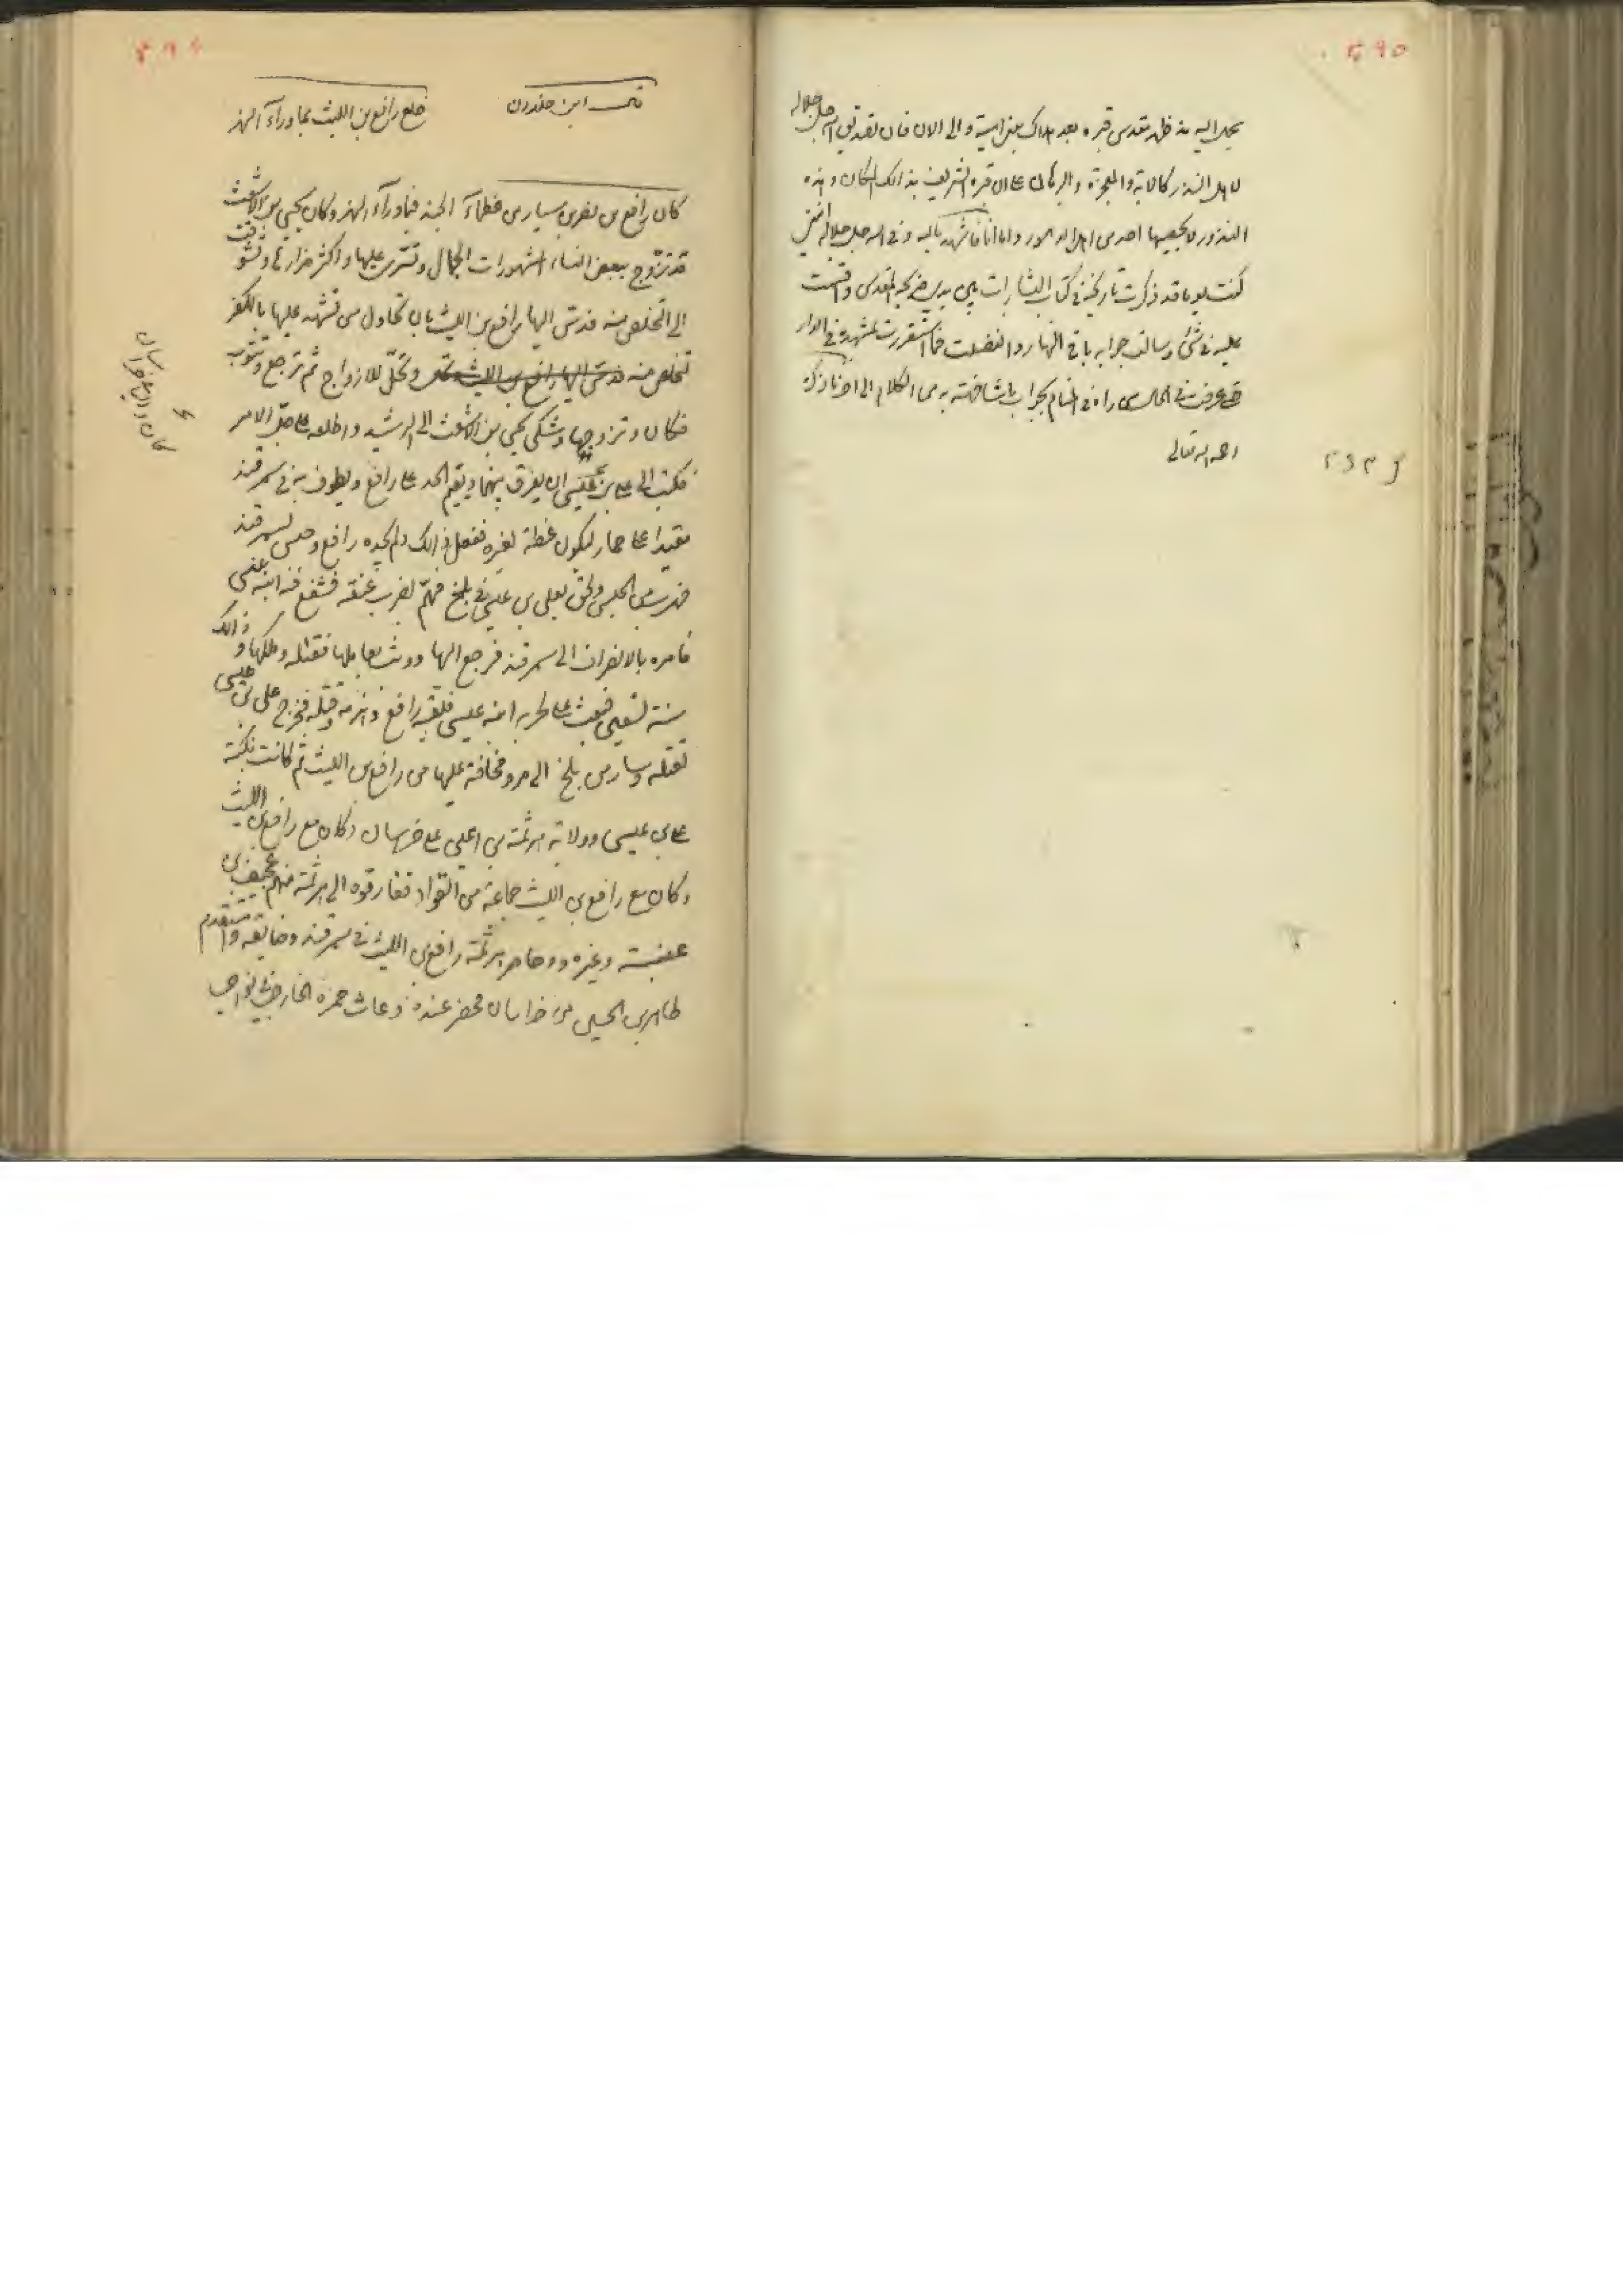 ٥٩٥
يحمل اليه منذ ظهر مقدس قبره بعد هلاك بني امية والى الان فان تصديق الله جل جلاله
لاهل النذور كالاية والمعجزة والبرهان على ان قبره الشريف بذالك المكان وهذه
النذور لا يحصيها احد من اهل الدهور واما انا فاشهد بالله وفي الله جل جلاله انني
كنت يوما قد ذكرت تاريخه في كتاب البشارات بين يدي ضريحه المقدس واقسمت
عليه في شئ وسالت جوابه باقي النهار وانفصلت فما استقررت بمشهده في الدار
حتى عرفت في الحال من راه في المنام بجواب ما شافهته به من الكلام الى اخر ما ذكره
رحمه الله تعالى
٥٩٦
قال ابن خلدون
خلع رافع بن الليث بماوراء النهر
كان رافع بن نصر بن سيار من عظماء الجند فيماوراء النهر وكان يحيى بن الاشعث
قد تزوج ببعض النساء المشهورات الجمال وتسرى عليها واكثر ضرارها وتشوقت
الى التخلص منه فدس اليها رافع بن الليث بان تحاول من يشهد عليها بالكفر
لتخلص منه وتحل للازواج ثم ترجع وتتوب
فكان وتزوجها وشكى يحيى بن الاشعث الى الرشيد واطلعه على جلي الامر
فكتب الى علي بن عيسى ان يفرق بينهما ويقيم الحد على رافع ويطوف به في سمرقند
مقيدا على حمار ليكون عظة لغيره ففعل ذالك ولم يحده رافع وحبس بسمرقند
فهرب من الحبس ولحق بعلي بن عيسى في بلخ فهم بضرب عنقه فشفع فيه ابنه عيسى
فامره بالانصراف الى سمرقند فرجع اليها ووثب بعاملها فقتله وملكها وذالك
سنة تسعين فبعث علي لحربه ابنه عيسى فلقيه رافع وهزمه وقتله فخرج علي بن عيسى
لقتله وسار من بلخ الى مرو مخافة عليها من رافع بن الليث ثم كانت نكبة
علي بن عيسى وولاية هرثمة بن اعين على خراسان وكان مع رافع بن الليث
وكان مع رافع بن الليث جماعة من القواد ففارقوه الى هرثمة منهم عجيف بن
عنبسة وغيره وحاصر هرثمة رافع بن الليث في سمرقند وضايقه واستقدم
طاهر بن الحسين من خراسان فحضر عنده وعاث حمزة الخارجي في نواحي